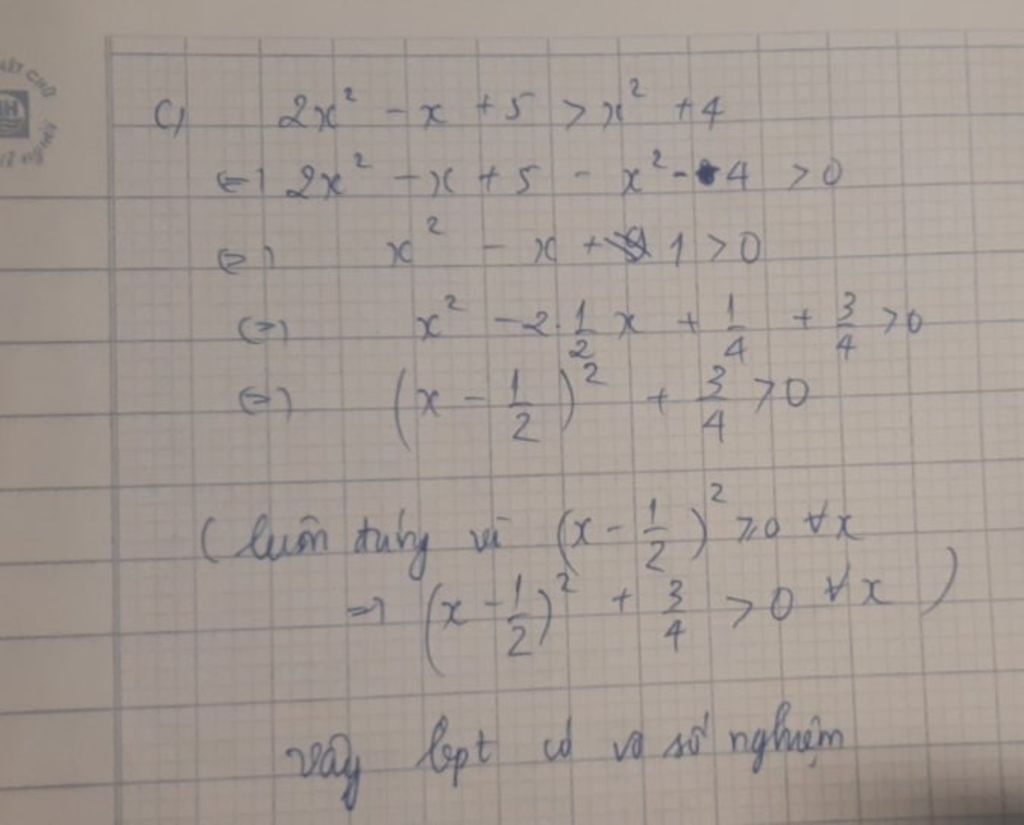 c) 2x² - x + 5 > x² + 4
<=> 2x² - x + 5 - x² - 4 > 0
<=> x² - x + 1 > 0
<=> x² - 2.1/2 x + 1/4 + 3/4 > 0
<=> (x - 1/2)² + 3/4 > 0
(luôn đúng vì (x - 1/2)² ≥ 0 ∀x
=> (x - 1/2)² + 3/4 > 0 ∀x)
vậy bpt có vô số nghiệm